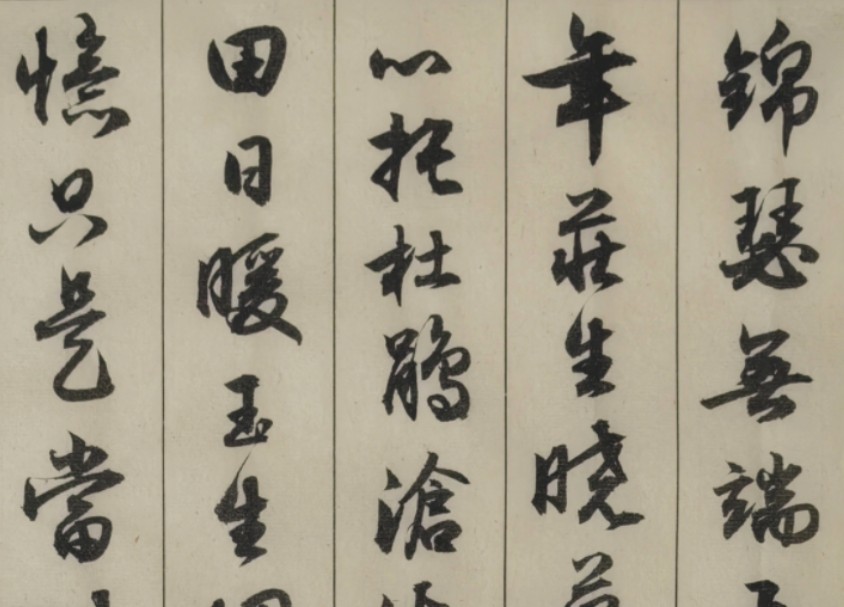 錦瑟無端
年莊生曉
心托杜鵑滄
田日暖玉生
憶只是當